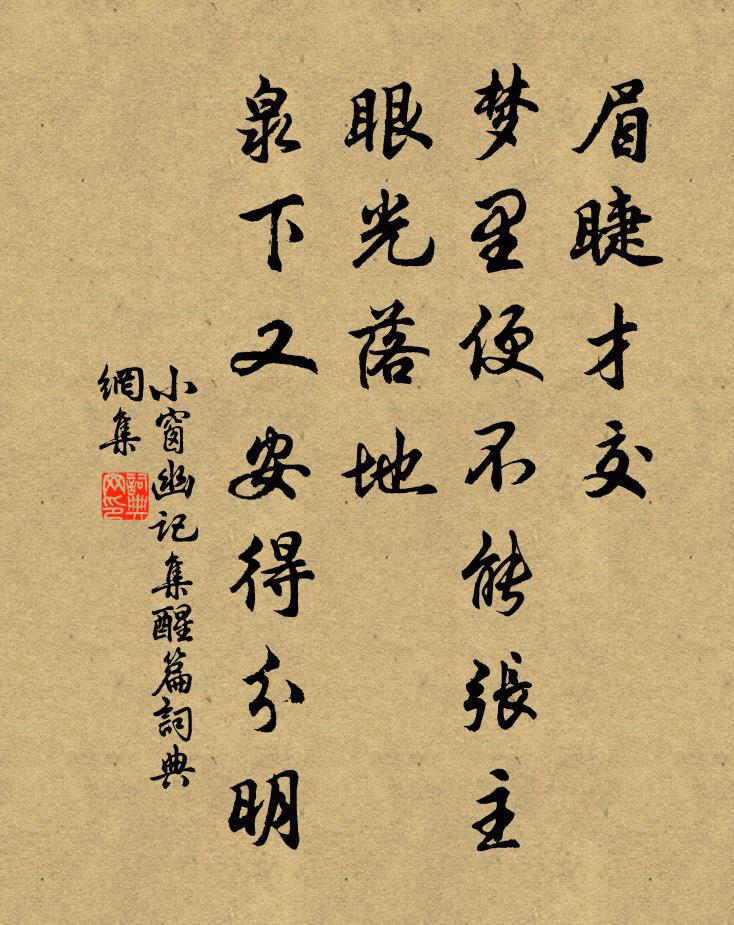 眉睫才交
梦里便不能張主
眼光落地
泉下又安得分明
小窗幽记集醒篇詞典
網集
詞典
网印